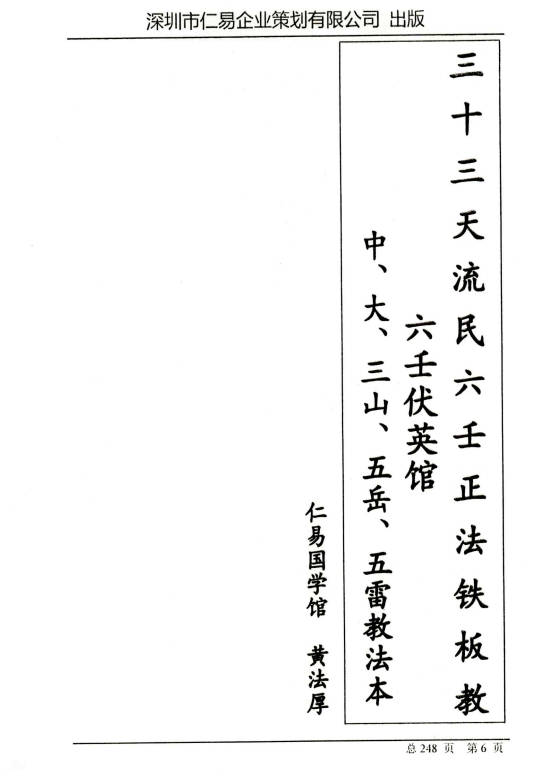 深圳市仁易企业策划有限公司 出版
三十三天流民六壬正法铁板教
六壬伏英馆
中、大、三山、五岳、五雷教法本
仁易国学馆 黄法厚
总 248 页 第 6 页